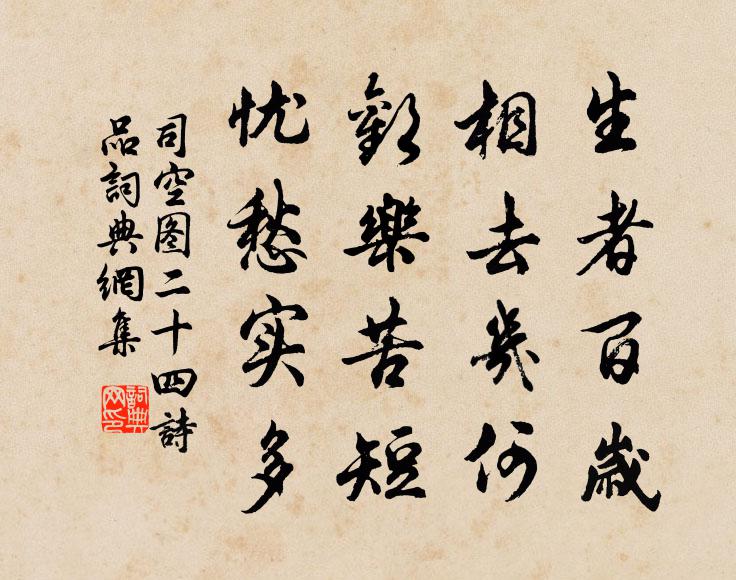 生者百歲
相去幾何
歡樂苦短
忧愁实多
司空图二十四詩
品詞典網集
詞典
网印